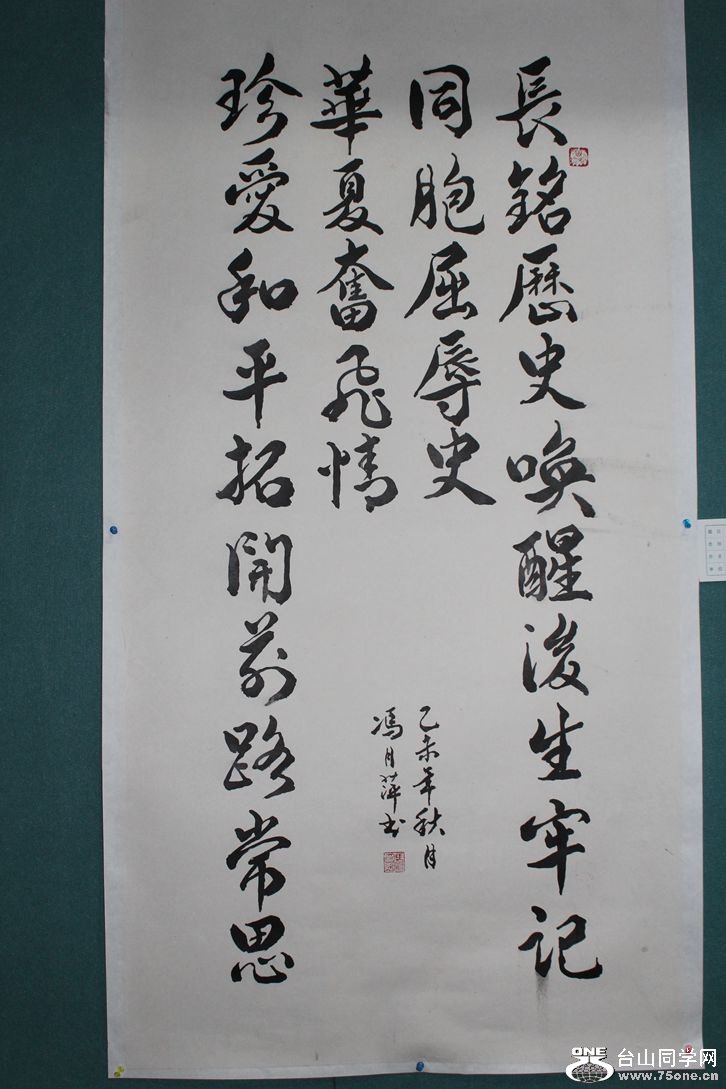 長銘歷史喚醒後生牢記
同胞屈辱史
珍愛和平拓開前路常思
華夏奮飛情
乙未年秋月
馮月萍书
ONE
台山同学网
www.75one.cn